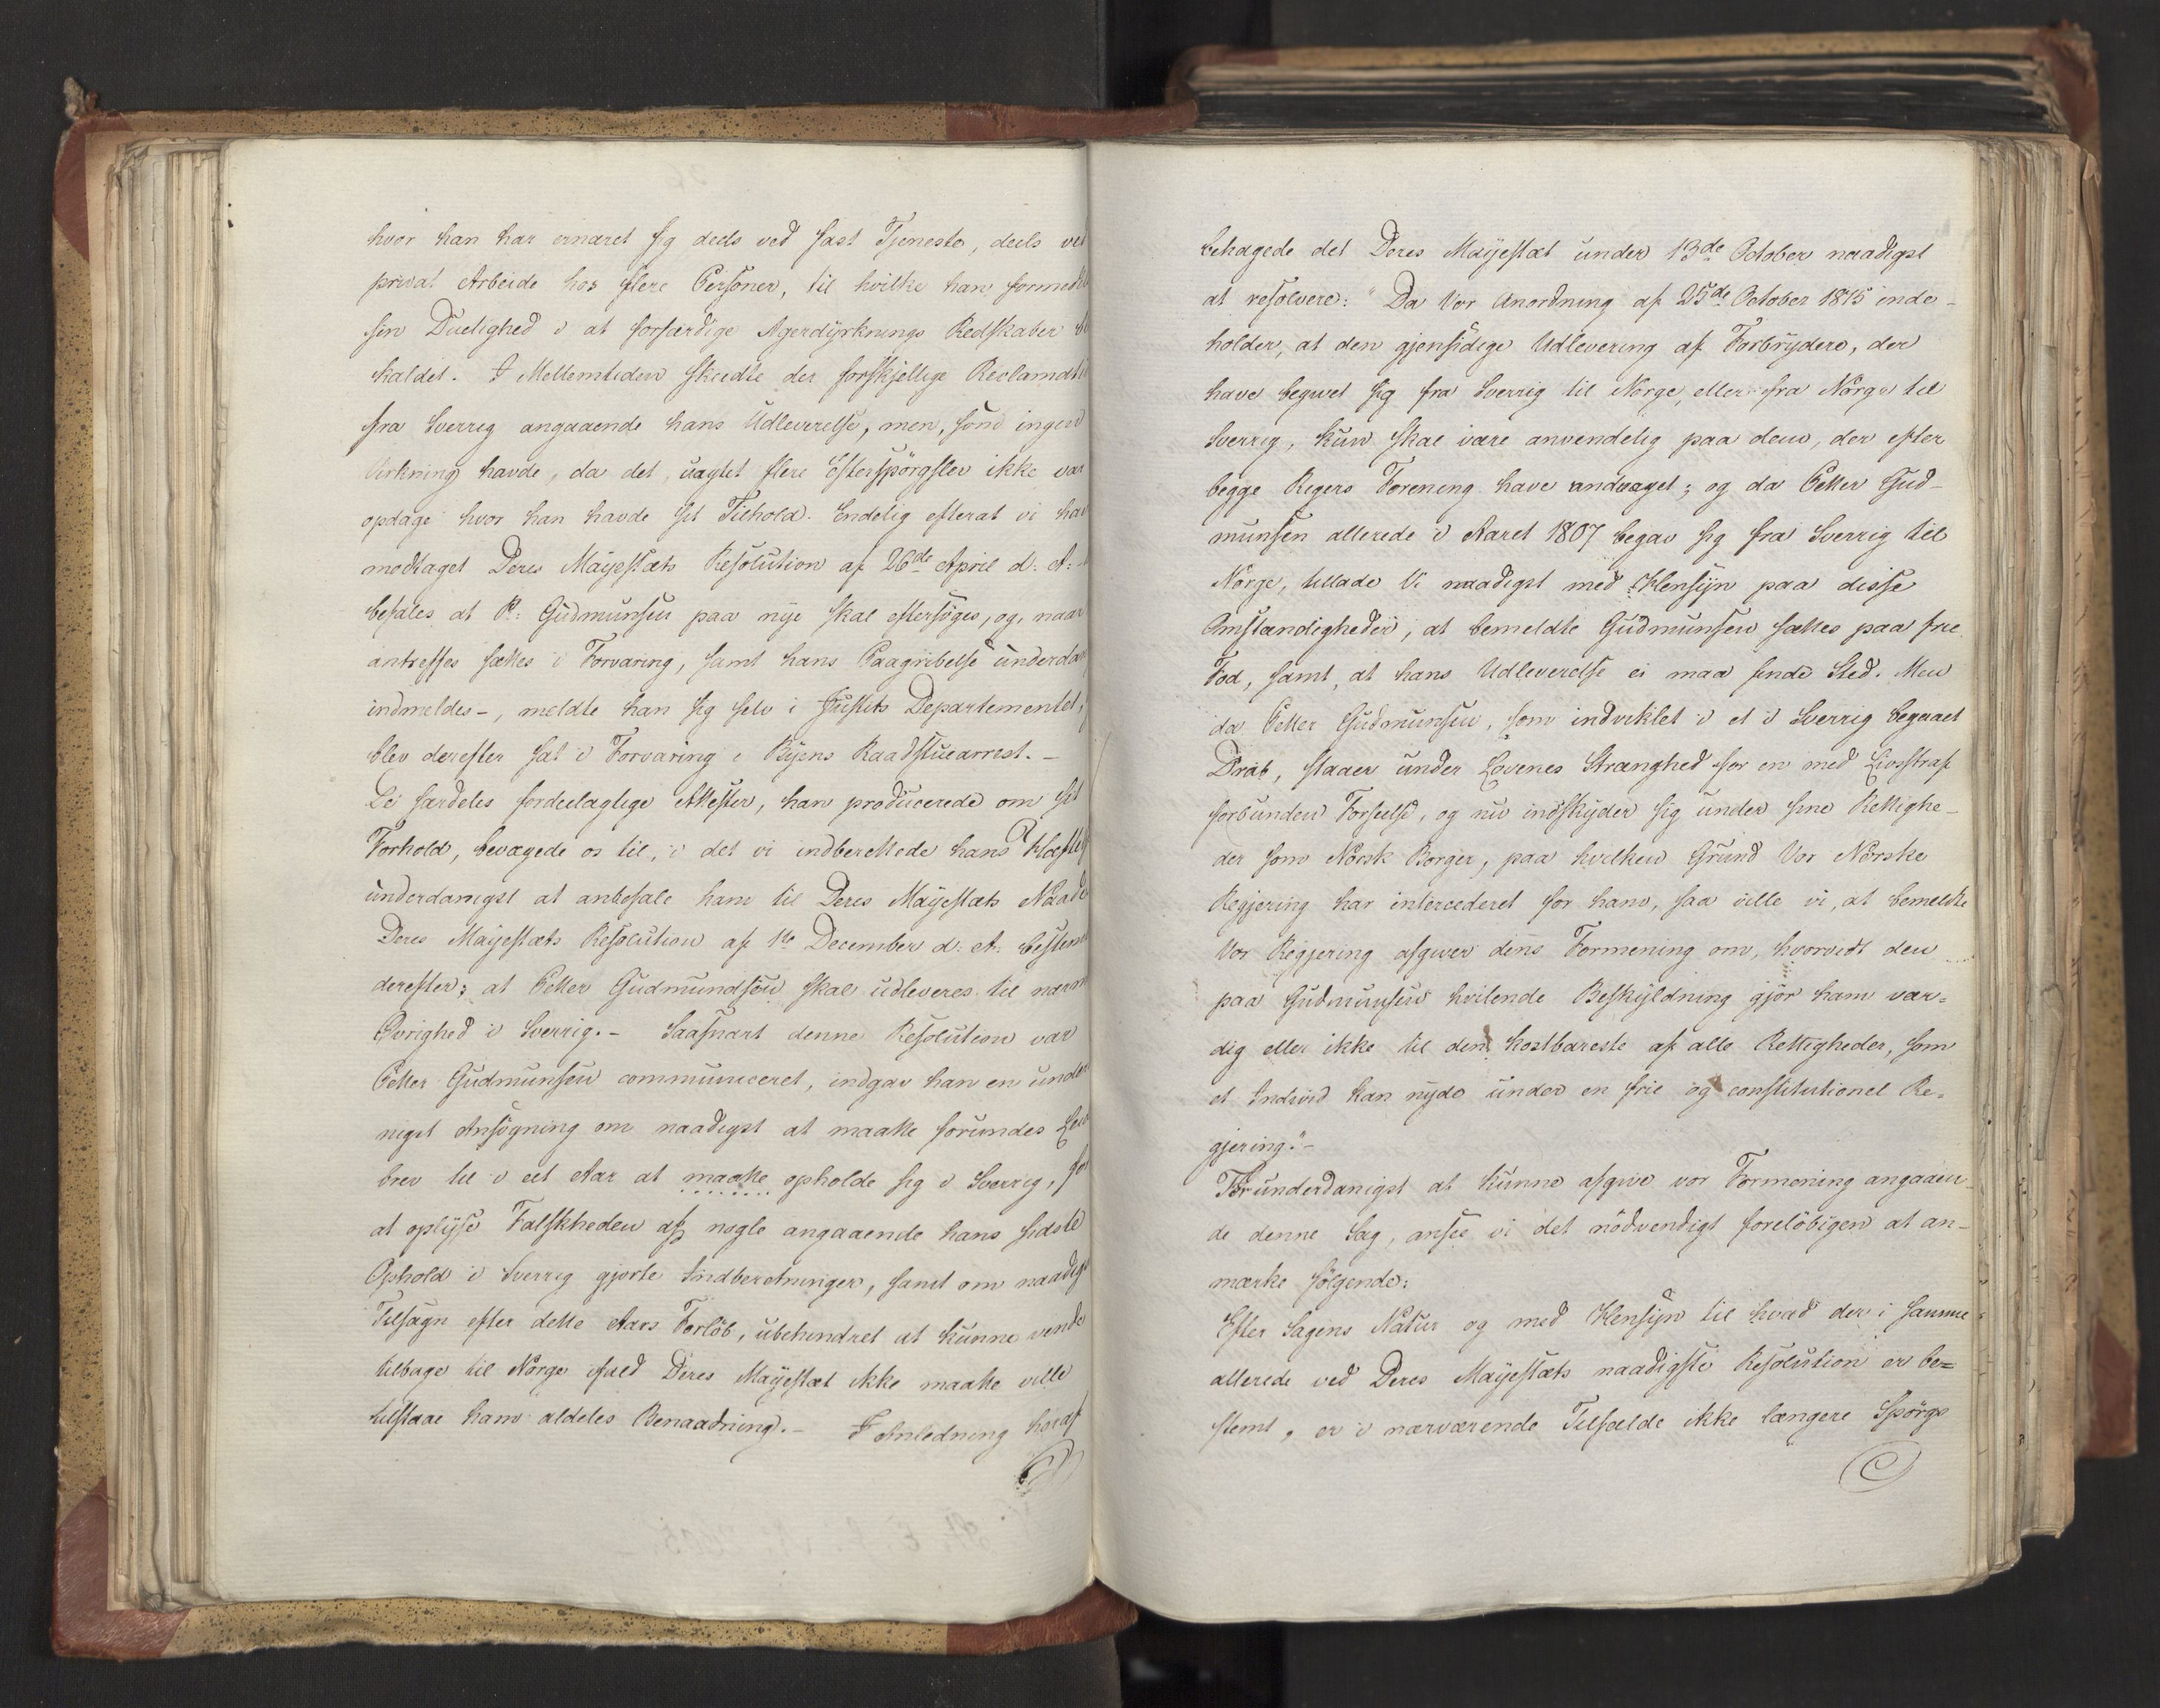 hvor han har ernæret sig deels ved fast Tjeneste, deels ved
privat Arbeide hos flere Personer, til hvilke han formedelst
sin Duelighed i at forfærdige Agerdyrknings Redskaber
kaldet. I Mellemtiden skeedte der forskjellige Reclamati
fra Sverrig angaaende hans Udleverelse, men, som ingen
Virkning havde, da det, uagtet flere Efterspörgsler ikke var
opdage hvor han havde sit Tilhold. Endelig efterat vi hav
modtaget Deres Mayestæts Resolution af 26de April d: A:
befales at P: Gudmunsen paa nye skal eftersöges, og, naar
antreffes sættes i Forvaring, samt hans Paagribelse underdan
indmeldes -, meldte han sig selv i Justits Departementet,
blev derefter sat i Forvaring i Byens Raadstuearrest. -
De særdeles fordeelagtige Attester, han producerede om sit
Forhold, bevægede os til, i det vi indberettede hans Hæftelse
underdanigst at anbefale ham til Deres Mayestæts Naade
Deres Mayestæts Resolution af 1te December d: A: bestemt
derefter; at Petter Gudmundsen skal udleveres til nærm
Övrighed i Sverrig. - Saasnart denne Resolution var
Petter Gudmunsen communiceret, indgav han en under
nigst Ansögning om naadigst at maatte forundes Lei
brev til i eet Aar at maatte opholde sig i Sverrig, for
at oplyse Falskheden af nogle angaaende hans sidste
Ophold i Sverrig gjorte Indberetninger, samt om naadigt
Tilsagn efter dette Aars Forlöb, ubehindret at kunne vende
tilbage til Norge ifald Deres Mayestæt ikke maatte ville
tilstaae ham aldeles Benaadning. - I Anledning heraf
behagede det Deres Mayestæt under 13de October naadigst
at resolvere: "Da Vor Anordning af 25de October 1815 inde-
holder, at den gjensidige Udlevering af Forbrydere, der
have begivet sig fra Sverrig til Norge, eller fra Norge til
Sverrig, kun skal være anvendelig paa dem, der efter
begge Rigers Forening have undveget; og da Petter Gud-
munsen allerede i Aaret 1807 begav sig fra Sverrig til
Norge, tillade Vi naadigst med Hensyn paa disse
Omstændigheder, at bemeldte Gudmunsen sættes paa frie
Fod, samt, at hans Udleverelse ei maa finde Sted. Men
da Petter Gudmunsen, som indviklet i et i Sverrig begaaet
Drab, staaer under Lovenes Strænghed for en med Livsstraf
forbunden Forseelse, og nu indskyder sig under sine Rettighe-
der som Norsk Borger, paa hvilken Grund Vor Norske
Regjering har intercederet for ham, saa ville vi, at bemeldte
Vor Regjering afgiver dens Formening om, hvorvidt den
paa Gudmunsen hvilende Beskyldning gjör ham vær=
dig eller ikke til den kostbareste af alle Rettigheder, som
et Individ kan nyde under en frie og constitutionel Re=
gjering." -
For underdanigst at kunne afgive vor Formening angaaen-
de denne Sag, ansee vi det nödvendigt forelöbigen at an-
mærke fölgende:
Efter Sagens Natur og med Hensyn til hvad der i samme
allerede ved Deres Mayestæts naadigste Resolution er be=
stemt, er i nærværende Tilfælde ikke længere Spörgs